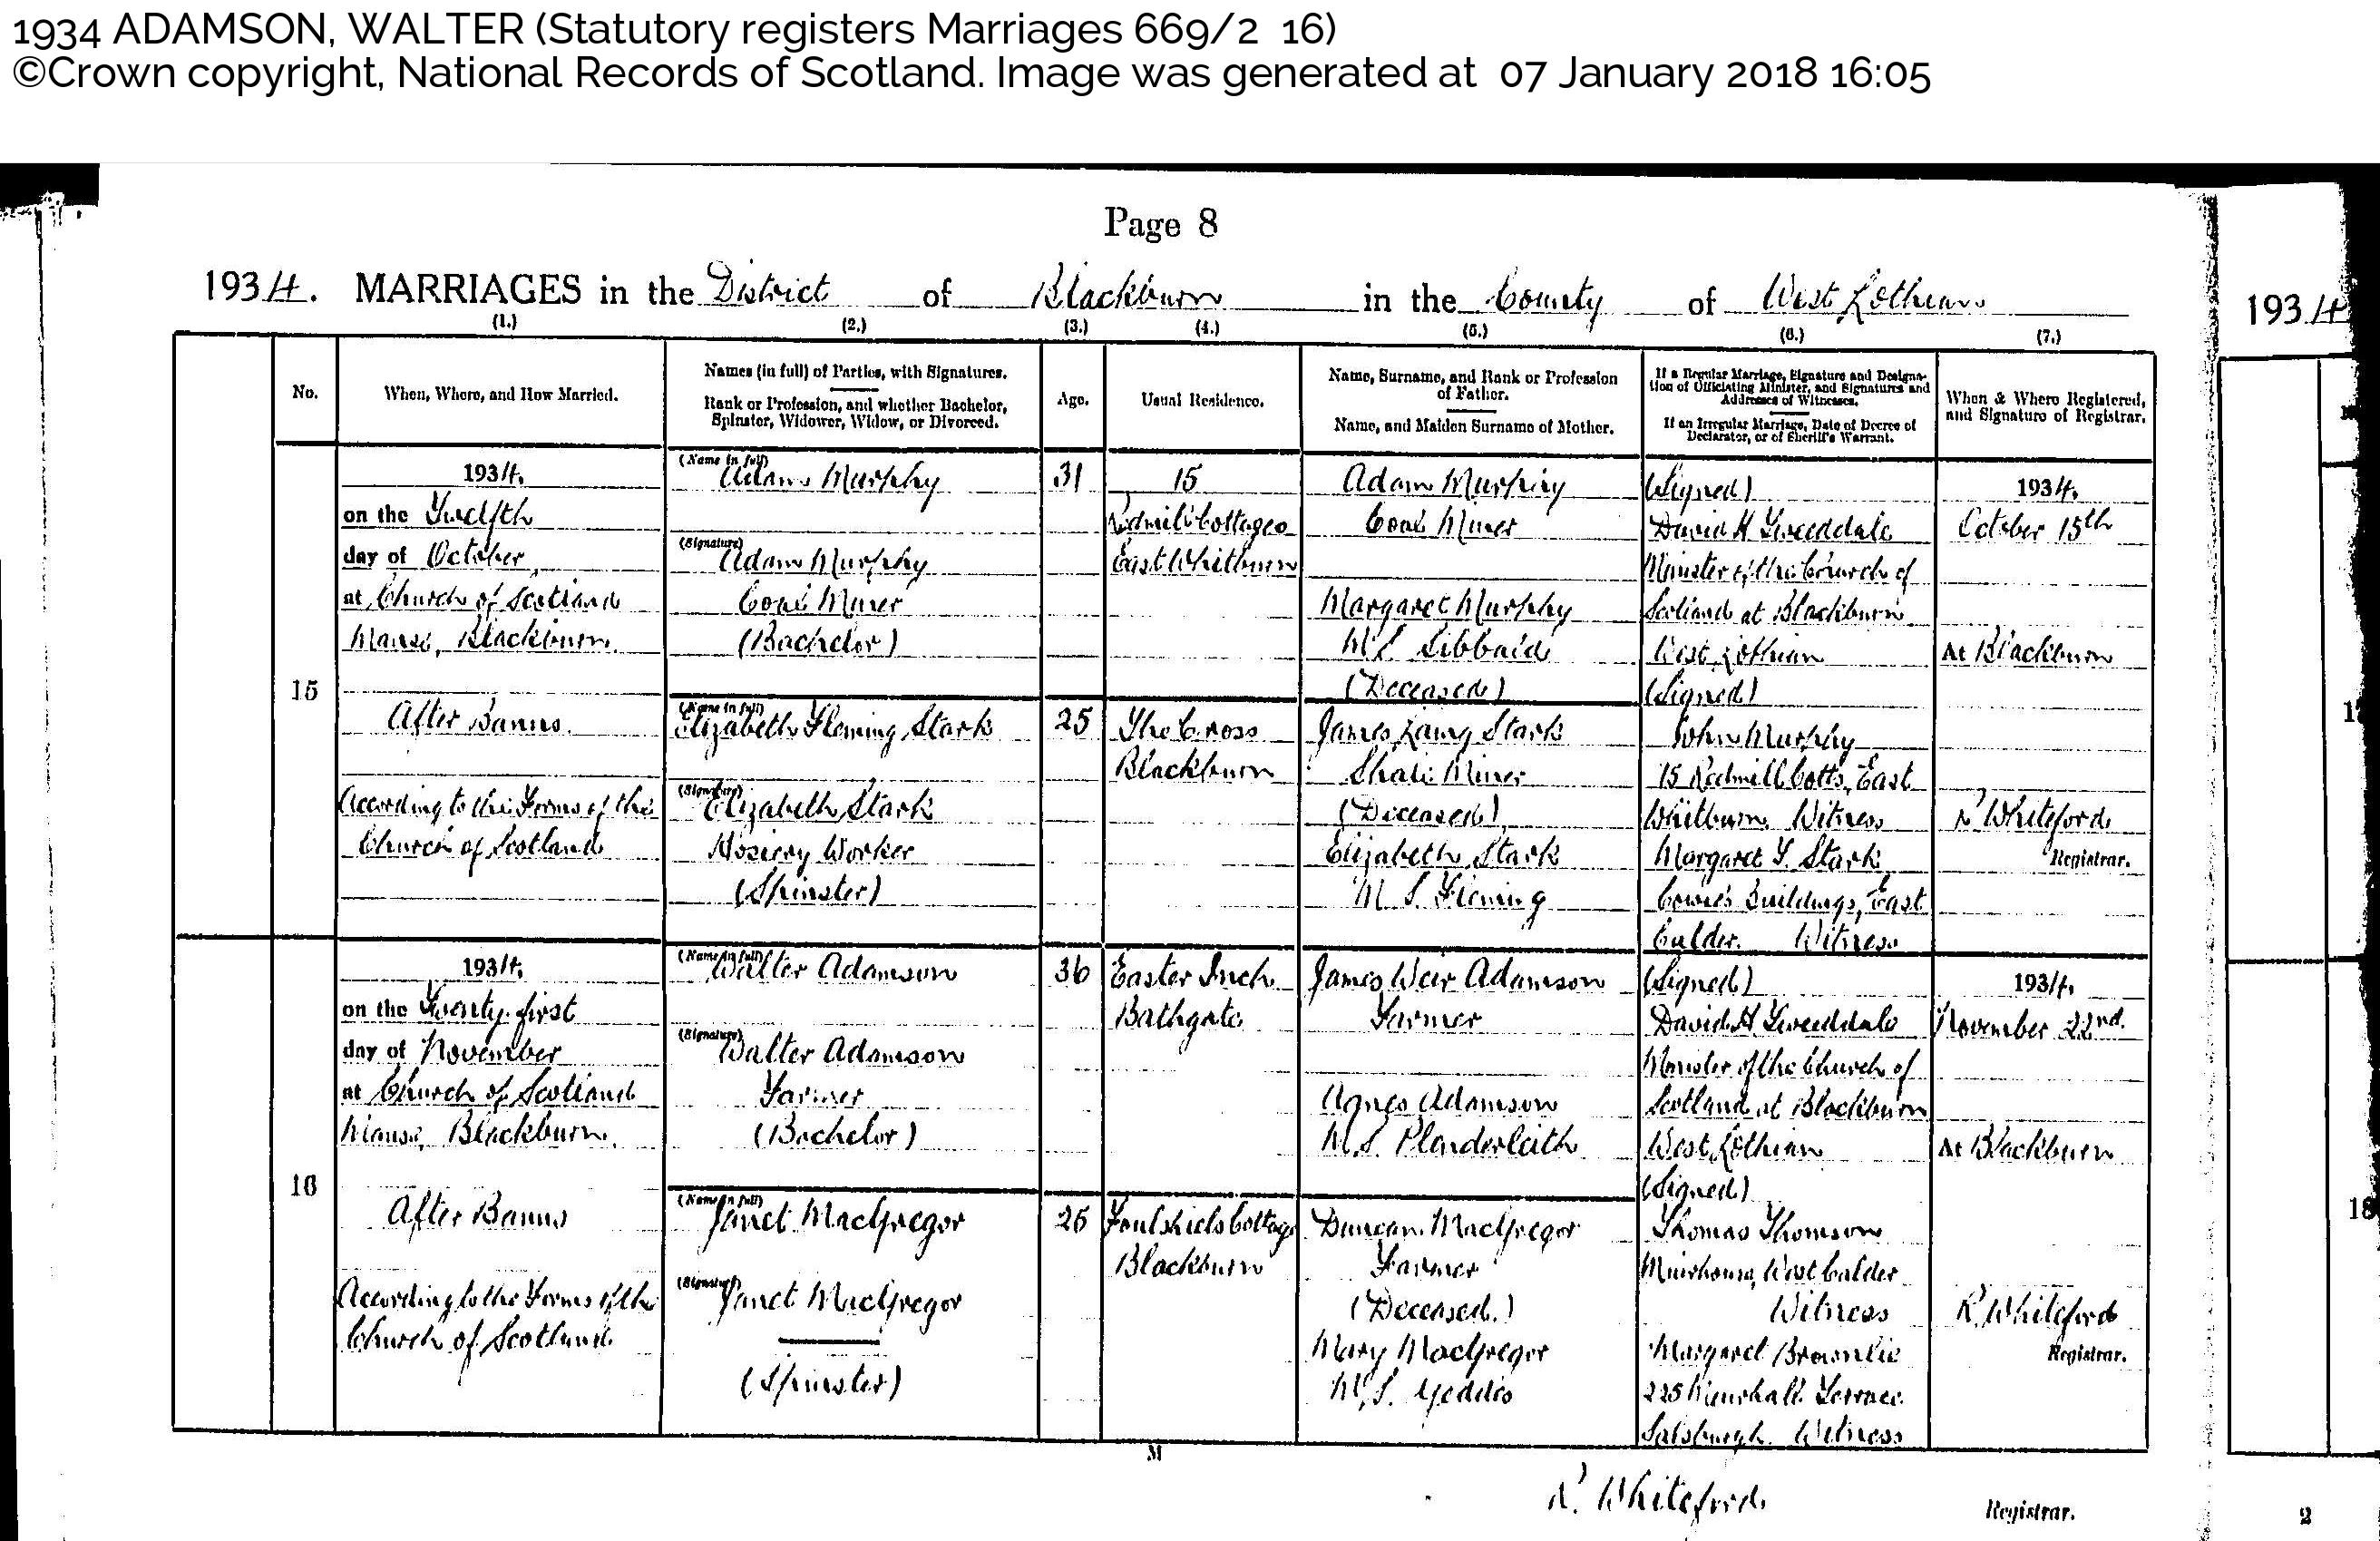 1934 ADAMSON, WALTER (Statutory registers Marriages 669/2 16)
©Crown copyright, National Records of Scotland. Image was generated at 07 January 2018 16:05
Page 8
1934. MARRIAGES in the District of Blackburn in the County of West Lothian
1934
(1.) (2.) (3.) (4.) (5.) (6.) (7.)
No.
When, Where, and How Married.
Names (in full) of Parties, with Signatures.
Rank or Profession, and whether Bachelor,
Spinster, Widower, Widow, or Divorced.
Age.
Usual Residence.
Name, Surname, and Rank or Profession
of Father.
Name, and Maiden Surname of Mother.
If a Regular Marriage, Signature and Designa-
tion of Officiating Minister, and Signatures and
Addresses of Witnesses.
If an Irregular Marriage, Date of Decree of
Declarator, or of Sheriff's Warrant.
When & Where Registered,
and Signature of Registrar.
15
1934.
on the Twelfth
day of October,
at Church of Scotland
Manse, Blackburn.
After Banns.
According to the Forms of the
Church of Scotland
(Name in full)
Adam Murphy
(Signature)
Adam Murphy
Coal Miner
(Bachelor)
(Name in full)
Elizabeth Fleming Stark
(Signature)
Elizabeth Stark
Hosiery Worker
(Spinster)
31
25
15
Redmill Cottages
East Whitburn
The Cross
Blackburn
Adam Murphy
Coal Miner
Margaret Murphy
M.S. Sibbald
(Deceased)
James Laing Stark
Shale Miner
(Deceased)
Elizabeth Stark
M.S. Fleming
(Signed)
David H Tweeddale
Minister of the Church of
Scotland at Blackburn
West Lothian
(Signed)
John Murphy
15 Redmill Cotts, East
Whitburn Witness
Margaret Y. Stark
Cowie's Buildings, East
Calder. Witness
1934.
October 15th
At Blackburn
R Whiteford
Registrar.
16
1934.
on the Twenty-first
day of November
at Church of Scotland
Manse, Blackburn.
After Banns
According to the Forms of the
Church of Scotland
(Name in full)
Walter Adamson
(Signature)
Walter Adamson
Farmer
(Bachelor)
(Name in full)
Janet MacGregor
(Signature)
Janet MacGregor
(Spinster)
36
26
Easter Inch
Bathgate
Foulshiels Cottage
Blackburn
James Weir Adamson
Farmer
Agnes Adamson
M.S. Plenderleith
Duncan MacGregor
Farmer
(Deceased.)
Mary MacGregor
M.S. Geddes
(Signed)
David H Tweeddale
Minister of the Church of
Scotland at Blackburn
West Lothian
(Signed)
Thomas Thomson
Muirhouse, West Calder
Witness
Margaret Brownlie
225 Terrace
Salsburgh. Witness
1934.
November 22nd.
At Blackburn
R. Whiteford
Registrar.
M
R. Whiteford
Registrar.
2